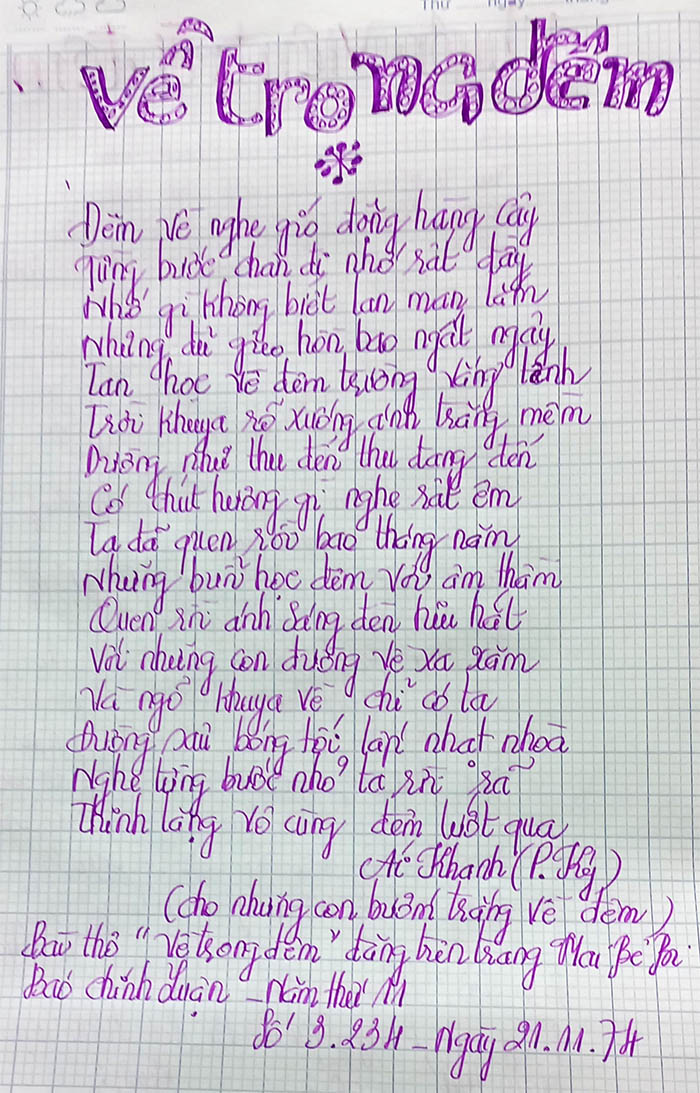 Thứ ngày tháng
Về trong đêm
Đêm về nghe gió động hàng cây
Từng bước chân đi nhớ rất đầy
Nhớ gì không biết lan man lắm
Nhưng dù gieo hồn bao ngất ngây
Tan học về đêm trường vắng lạnh
Trời khuya rớ xuống ánh trăng mềm
Dường như thu đến thu đang đến
Có chút hương gì nghe rất êm
Ta đã quen rồi bao tháng năm
Những buổi học đêm với âm thầm
Quen rồi ánh sáng đèn hiu hắt
Với những con đường về xa xăm
Và ngõ khuya về chỉ có ta
Đường sau bóng tối lấp nhạt nhoà
Nghe từng bước nhỏ ta rời rã
Thinh lặng vô cùng đêm lướt qua
Ái Khanh (P. Ký)
(Cho những con bướm trắng về đêm)
Bài thơ "Về trong đêm" đăng trên trang Mai Bê Bi.
Báo chính luận - Năm thứ 11
Số 3.234 - Ngày 21.11.74